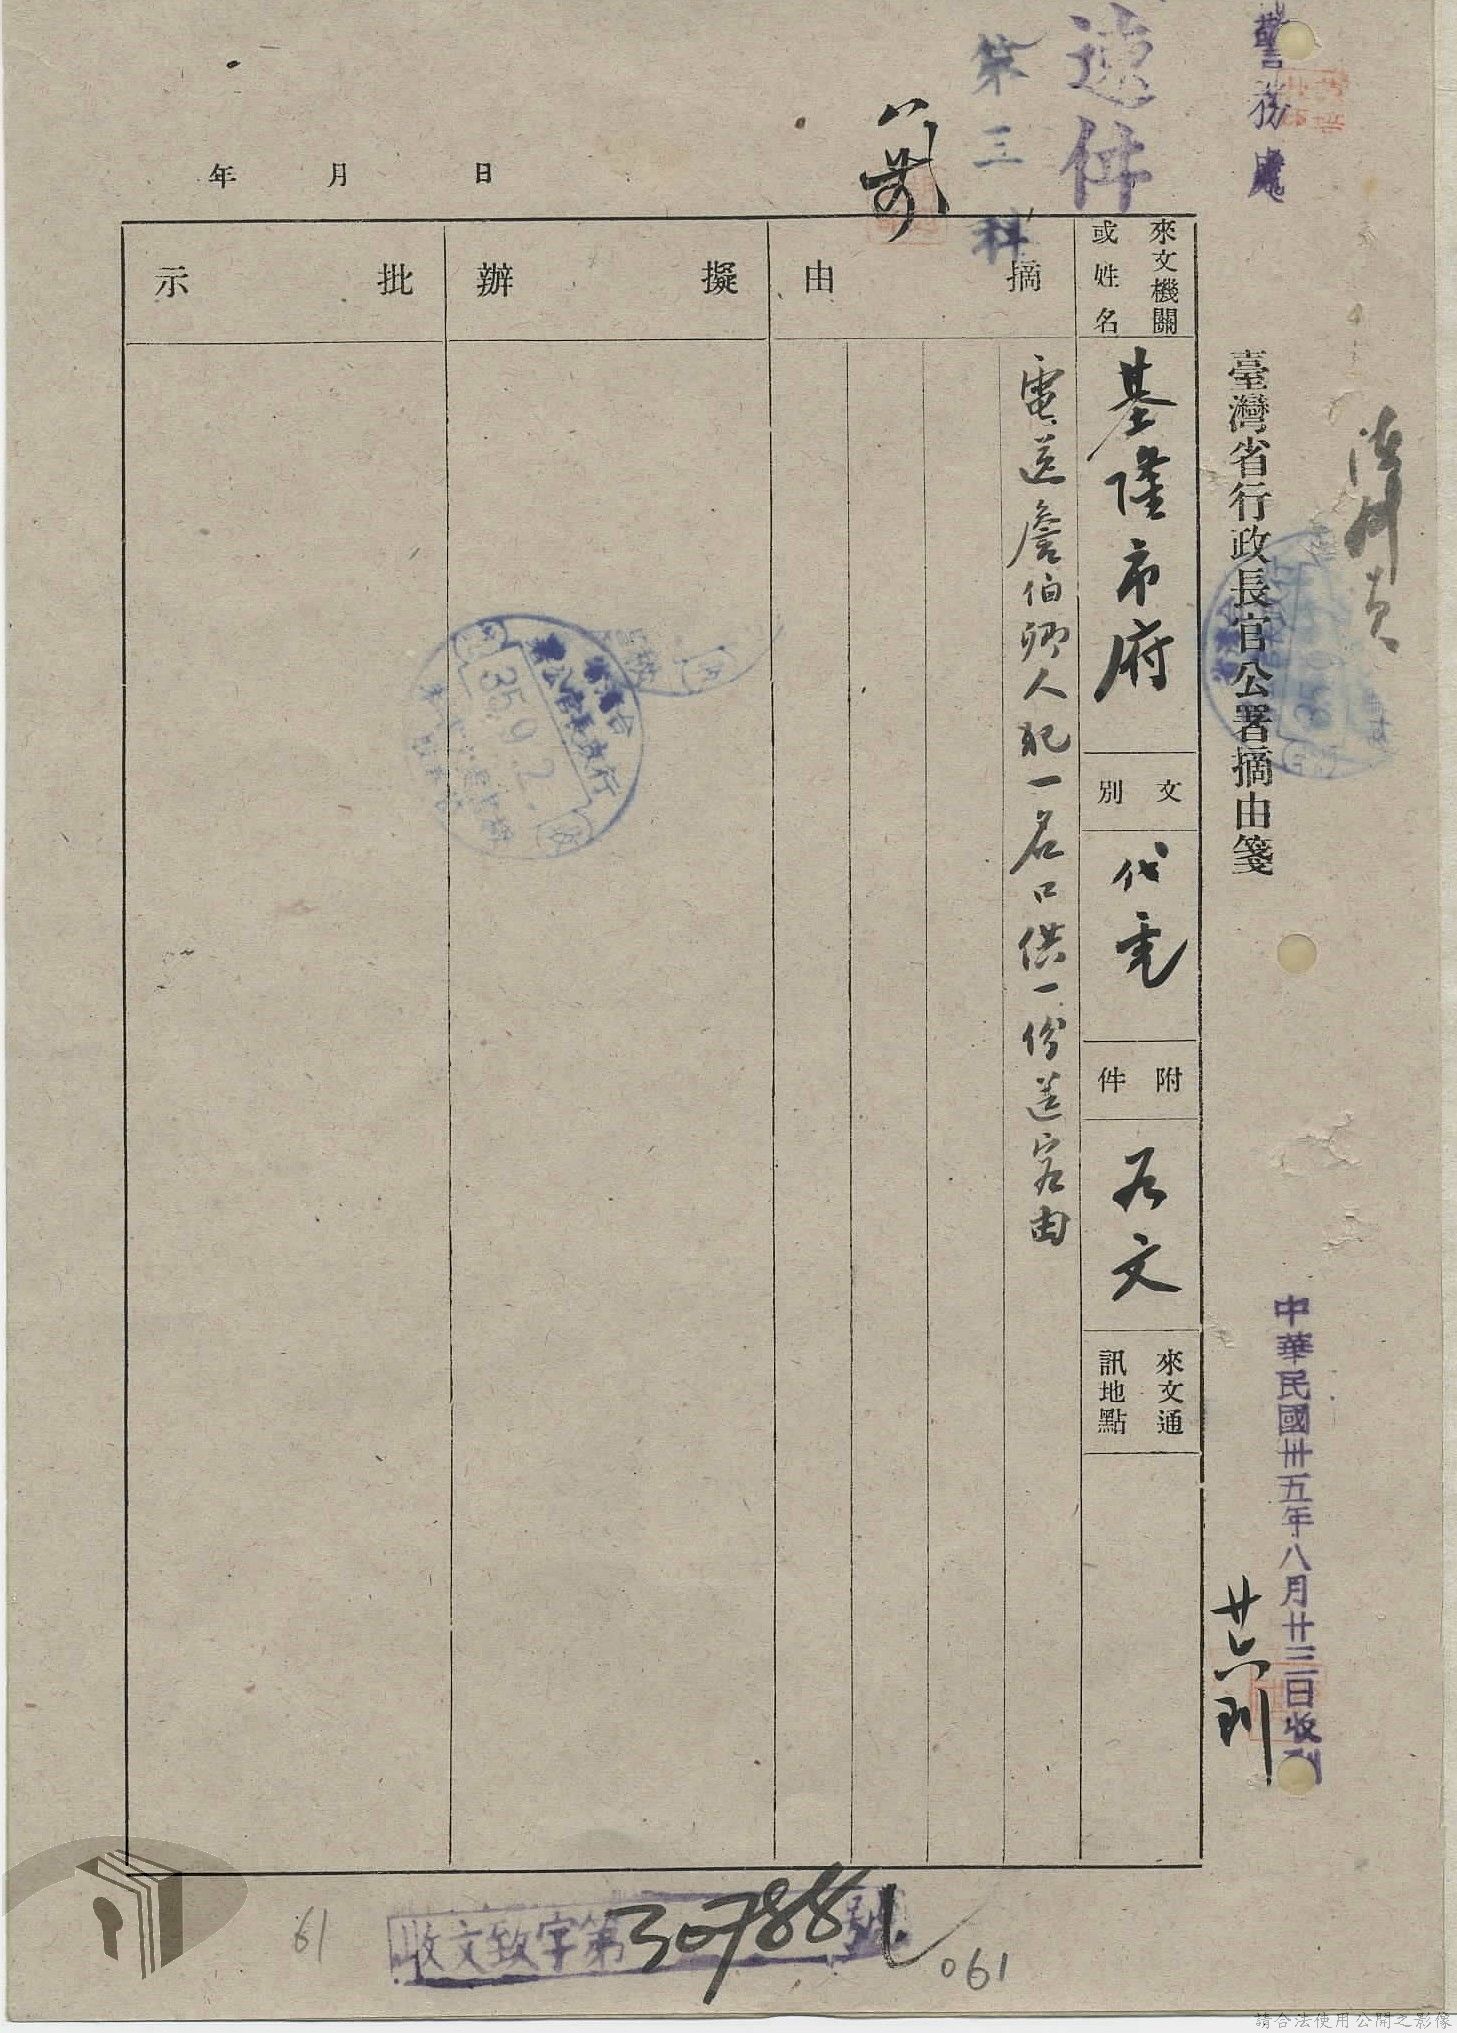 警務處
速件
第三科
臺灣省行政長官公署摘由箋
中華民國卅五年八月廿三日收到
來文機關
或姓名
基隆市府
文別
代電
附件
如文
來文通
訊地點
摘由
電送詹伯卿人犯一名口供一份送察由
擬辦
批示
年 月 日
35.9.2.
收文致字第30788號
61
061
請合法使用公開之影像